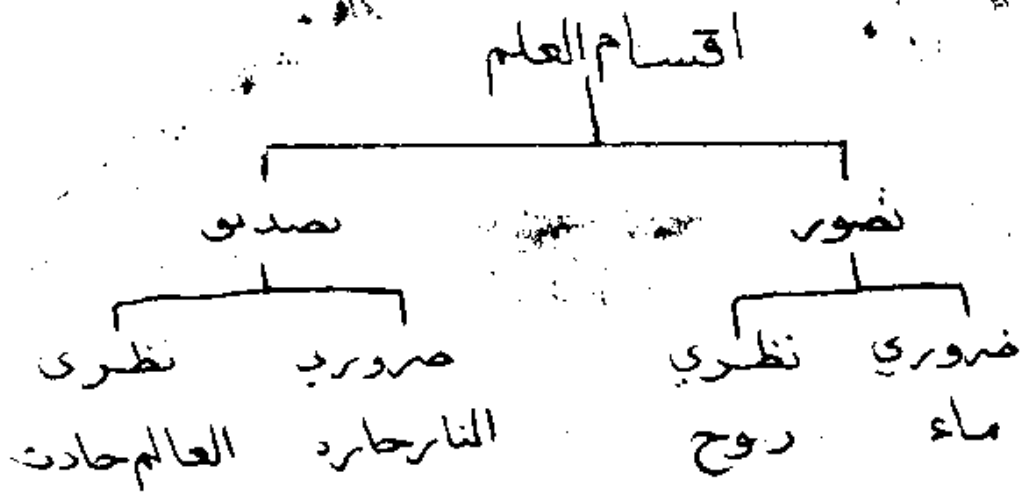 اقسام العلم
تصور تصديق
ضروري نظري ضروري نظرى
ماء روح النار حاره العالم حادث